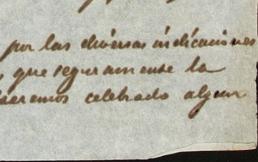 por las diversas indicaciones
, que seguramente la
seremos celebrado algun